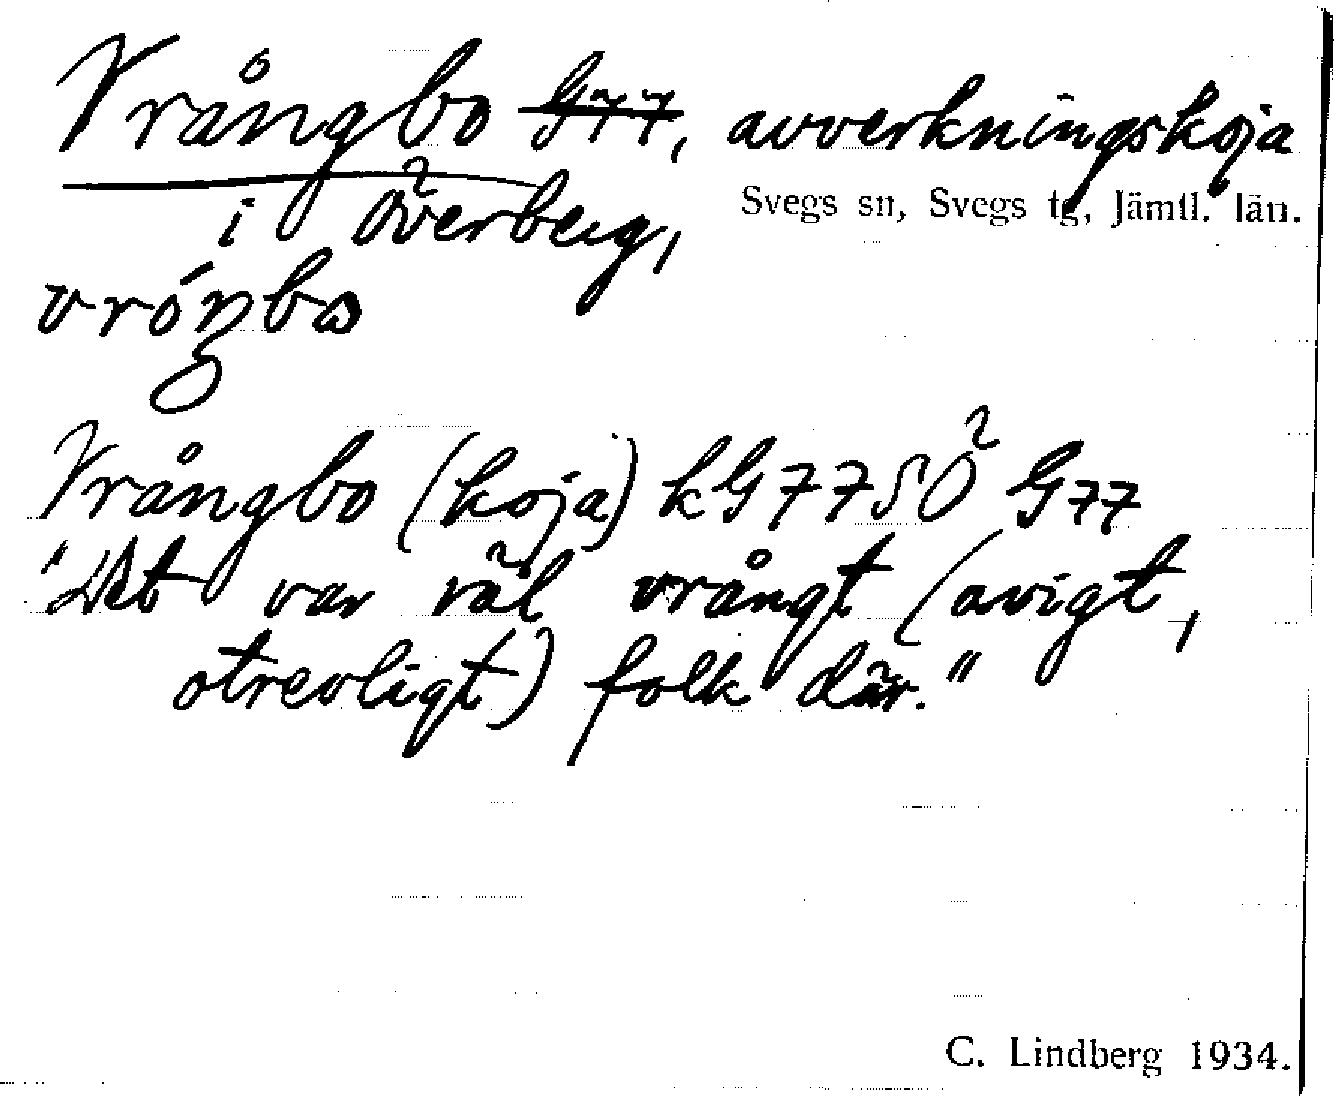 Vrångbo G77, avverkningskoja
i Överberg,
Svegs sn, Svegs tg, Jämtl. län.
vróŋbo
Vrångbo (koja) kG77SÖ G77
"Det var väl vrångt (avigt,
otrevligt) folk där."
C. Lindberg 1934.